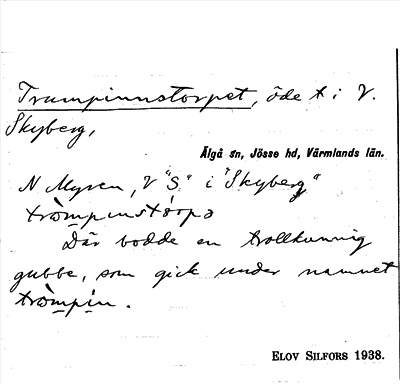 Trumpinnstorpet, öde t i V.
Skyberg,
Älgå sn, Jösse hd, Värmlands län.
N Myren, V "S" i "Skyberg"
tròmpinstórpə
Där bodde en trollkunnig
gubbe, som gick under namnet
tròmpin.
ELOV SILFORS 1938.